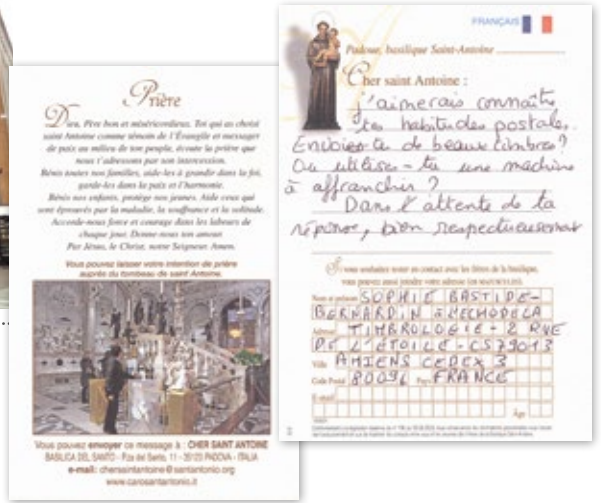 Prière
Dieu, Père bon et miséricordieux, Toi qui as choisi
saint Antoine comme témoin de l'Évangile et messager
de paix au milieu de ton peuple, écoute la prière que
nous t'adressons par son intercession.
Bénis toutes nos familles, aide-les à grandir dans la foi,
garde-les dans la paix et l'harmonie.
Bénis nos enfants, protège nos jeunes. Aide ceux qui
sont éprouvés par la maladie, la souffrance et la solitude.
Accorde-nous force et courage dans les labeurs de
chaque jour. Donne-nous ton amour.
Par Jésus, le Christ, notre Seigneur. Amen.
Vous pouvez laisser votre intention de prière
auprès du tombeau de saint Antoine.
Vous pouvez envoyer ce message à : CHER SAINT ANTOINE
BASILICA DEL SANTO - P.za del Santo, 11 - 35123 PADOVA - ITALIA
e-mail: chersaintantoine@santantonio.org
www.carosantantonio.it
FRANÇAIS
Padoue, basilique Saint-Antoine
Cher saint Antoine :
j'aimerais connaître
tes habitudes postales.
Envoies-tu de beaux timbres?
Ou utilises-tu une machine
à affranchir ?
Dans l'attente de ta
réponse, bien respectueusement
Si vous souhaitez rester en contact avec les frères de la basilique,
vous pouvez aussi joindre votre adresse (EN MAJUSCULES).
Nom et prénom SOPHIE BASTIDE-
BERNARDIN
Adresse TIMBROLOGIE - 2 RUE
DE L'ÉTOILE - CS79013
Ville AMIENS CEDEX 3
Code Postal 80096 Pays FRANCE
E-mail
Âge